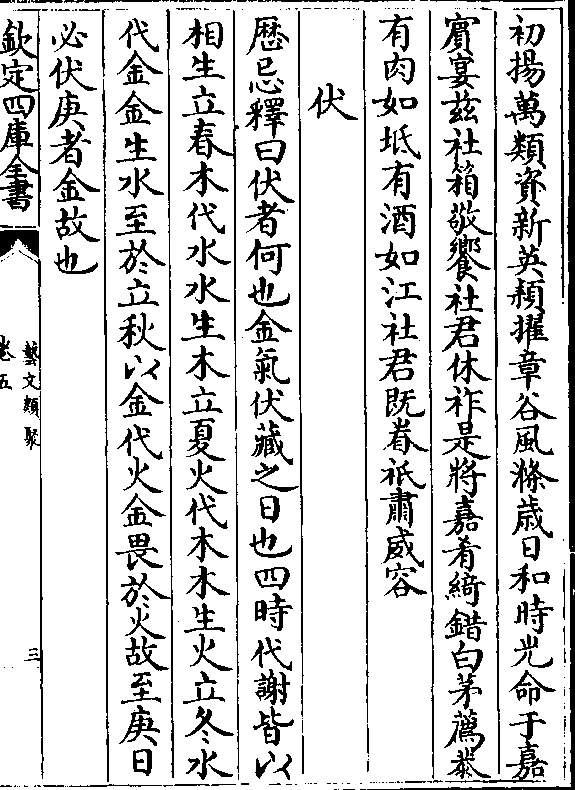 初揚萬類資新英穎擢章谷風滌歳日和時光命于嘉
賔宴兹社箱敬饗社君休祚是將嘉肴綺錯白茅薦恭
有肉如坻有酒如江社君既眷祇肅威容
伏
歴忌釋曰伏者何也金氣伏藏之日也四時代謝皆以
相生立春木代水水生木立夏火代木木生火立冬水
代金金生水至於立秋以金代火金畏於火故至庚日
必伏庚者金故也
欽定四庫全書
藝文類聚
卷五
三